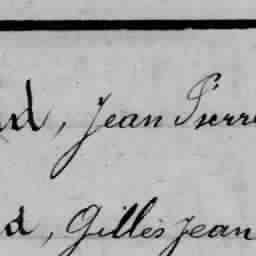 d, Jean Pierre
d, Gilles Jean